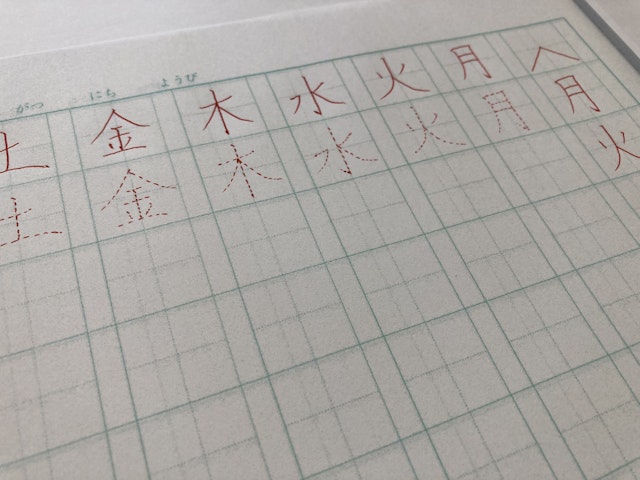 がつ にち ようび
〈月火
月月
火火
水水
木木
金金
土土